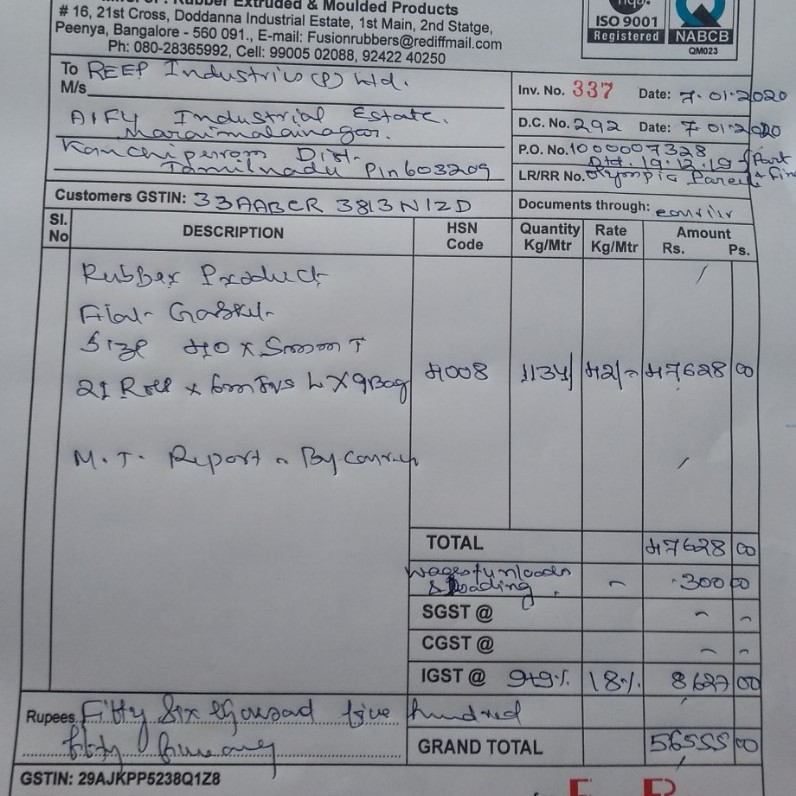 Rubber Extruded & Moulded Products
# 16, 21st Cross, Doddanna Industrial Estate, 1st Main, 2nd Statge,
Peenya, Bangalore - 560 091., E-mail: Fusionrubbers@rediffmail.com
Ph: 080-28365992, Cell: 99005 02088, 92422 40250
ISO 9001
Registered
NABCB
QM023
To REEP Industries (P) Ltd.
M/s
Industrial Estate.
Maraimalainagar.
Kanchipurom Dist.
Tamilnadu Pin 603209
Inv. No. 337 Date: 7.01.2020
D.C. No. 292 Date: 7.01.2020
P.O. No. 1000007328
Dtd. 19.12.19
LR/RR No. Olympic Parcel
Customers GSTIN: 33AABCR 3813N1ZD
Documents through:
Sl. No DESCRIPTION HSN Code Quantity Kg/Mtr Rate Kg/Mtr Amount Rs. Ps.
Rubber Product
Size 40 x 5mm T
21 Roll x 6mtrs L x 9Bag 4008 1134 42/- 47628 00
M.T. Report - By
TOTAL 47628 00
Wages for unloading
& loading - 300 00
SGST @ - -
CGST @ - -
IGST @ 9+9% 18% 8627 00
Rupees Fifty Six thousand five hundred
fifty five
GRAND TOTAL 56555 00
GSTIN: 29AJKPP5238Q1Z8